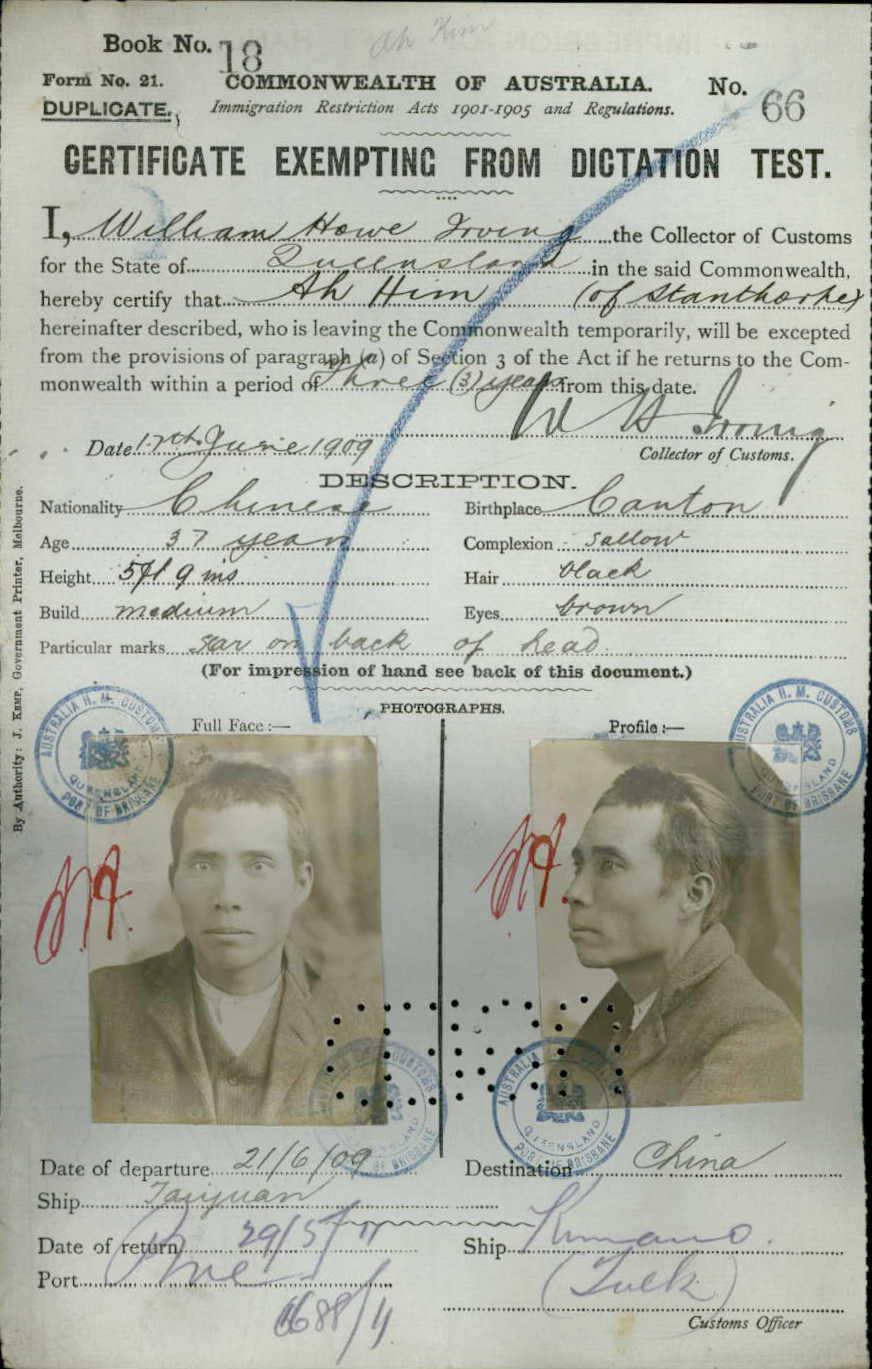 Ah Kim
Book No. 18
Form No. 21. COMMONWEALTH OF AUSTRALIA. No. 66
DUPLICATE. Immigration Restriction Acts 1901-1905 and Regulations.
CERTIFICATE EXEMPTING FROM DICTATION TEST.
I, William Howe Irving the Collector of Customs
for the State of Queensland in the said Commonwealth,
hereby certify that Ah Him (of Stanthorpe)
hereinafter described, who is leaving the Commonwealth temporarily, will be excepted
from the provisions of paragraph (a) of Section 3 of the Act if he returns to the Com-
monwealth within a period of Three (3) years from this date.
W H Irving
Date 17th June 1909 Collector of Customs.
DESCRIPTION.
Nationality Chinese Birthplace Canton
Age 37 years Complexion Sallow
Height 5ft 9 ins Hair black
Build medium Eyes brown
Particular marks scar on back of head.
(For impression of hand see back of this document.)
PHOTOGRAPHS.
Full Face :— Profile :—
AUSTRALIA H. M. CUSTOMS QUEENSLAND PORT OF BRISBANE
AUSTRALIA H. M. CUSTOMS QUEENSLAND PORT OF BRISBANE
AUSTRALIA H. M. CUSTOMS QUEENSLAND PORT OF BRISBANE
AUSTRALIA H. M. CUSTOMS QUEENSLAND PORT OF BRISBANE
Date of departure 21/6/09 Destination China
Ship Taiyuan
Date of return 29/5/11 Ship Kumano.
Port Bne (Tuck)
Customs Officer
By Authority: J. Kemp, Government Printer, Melbourne.